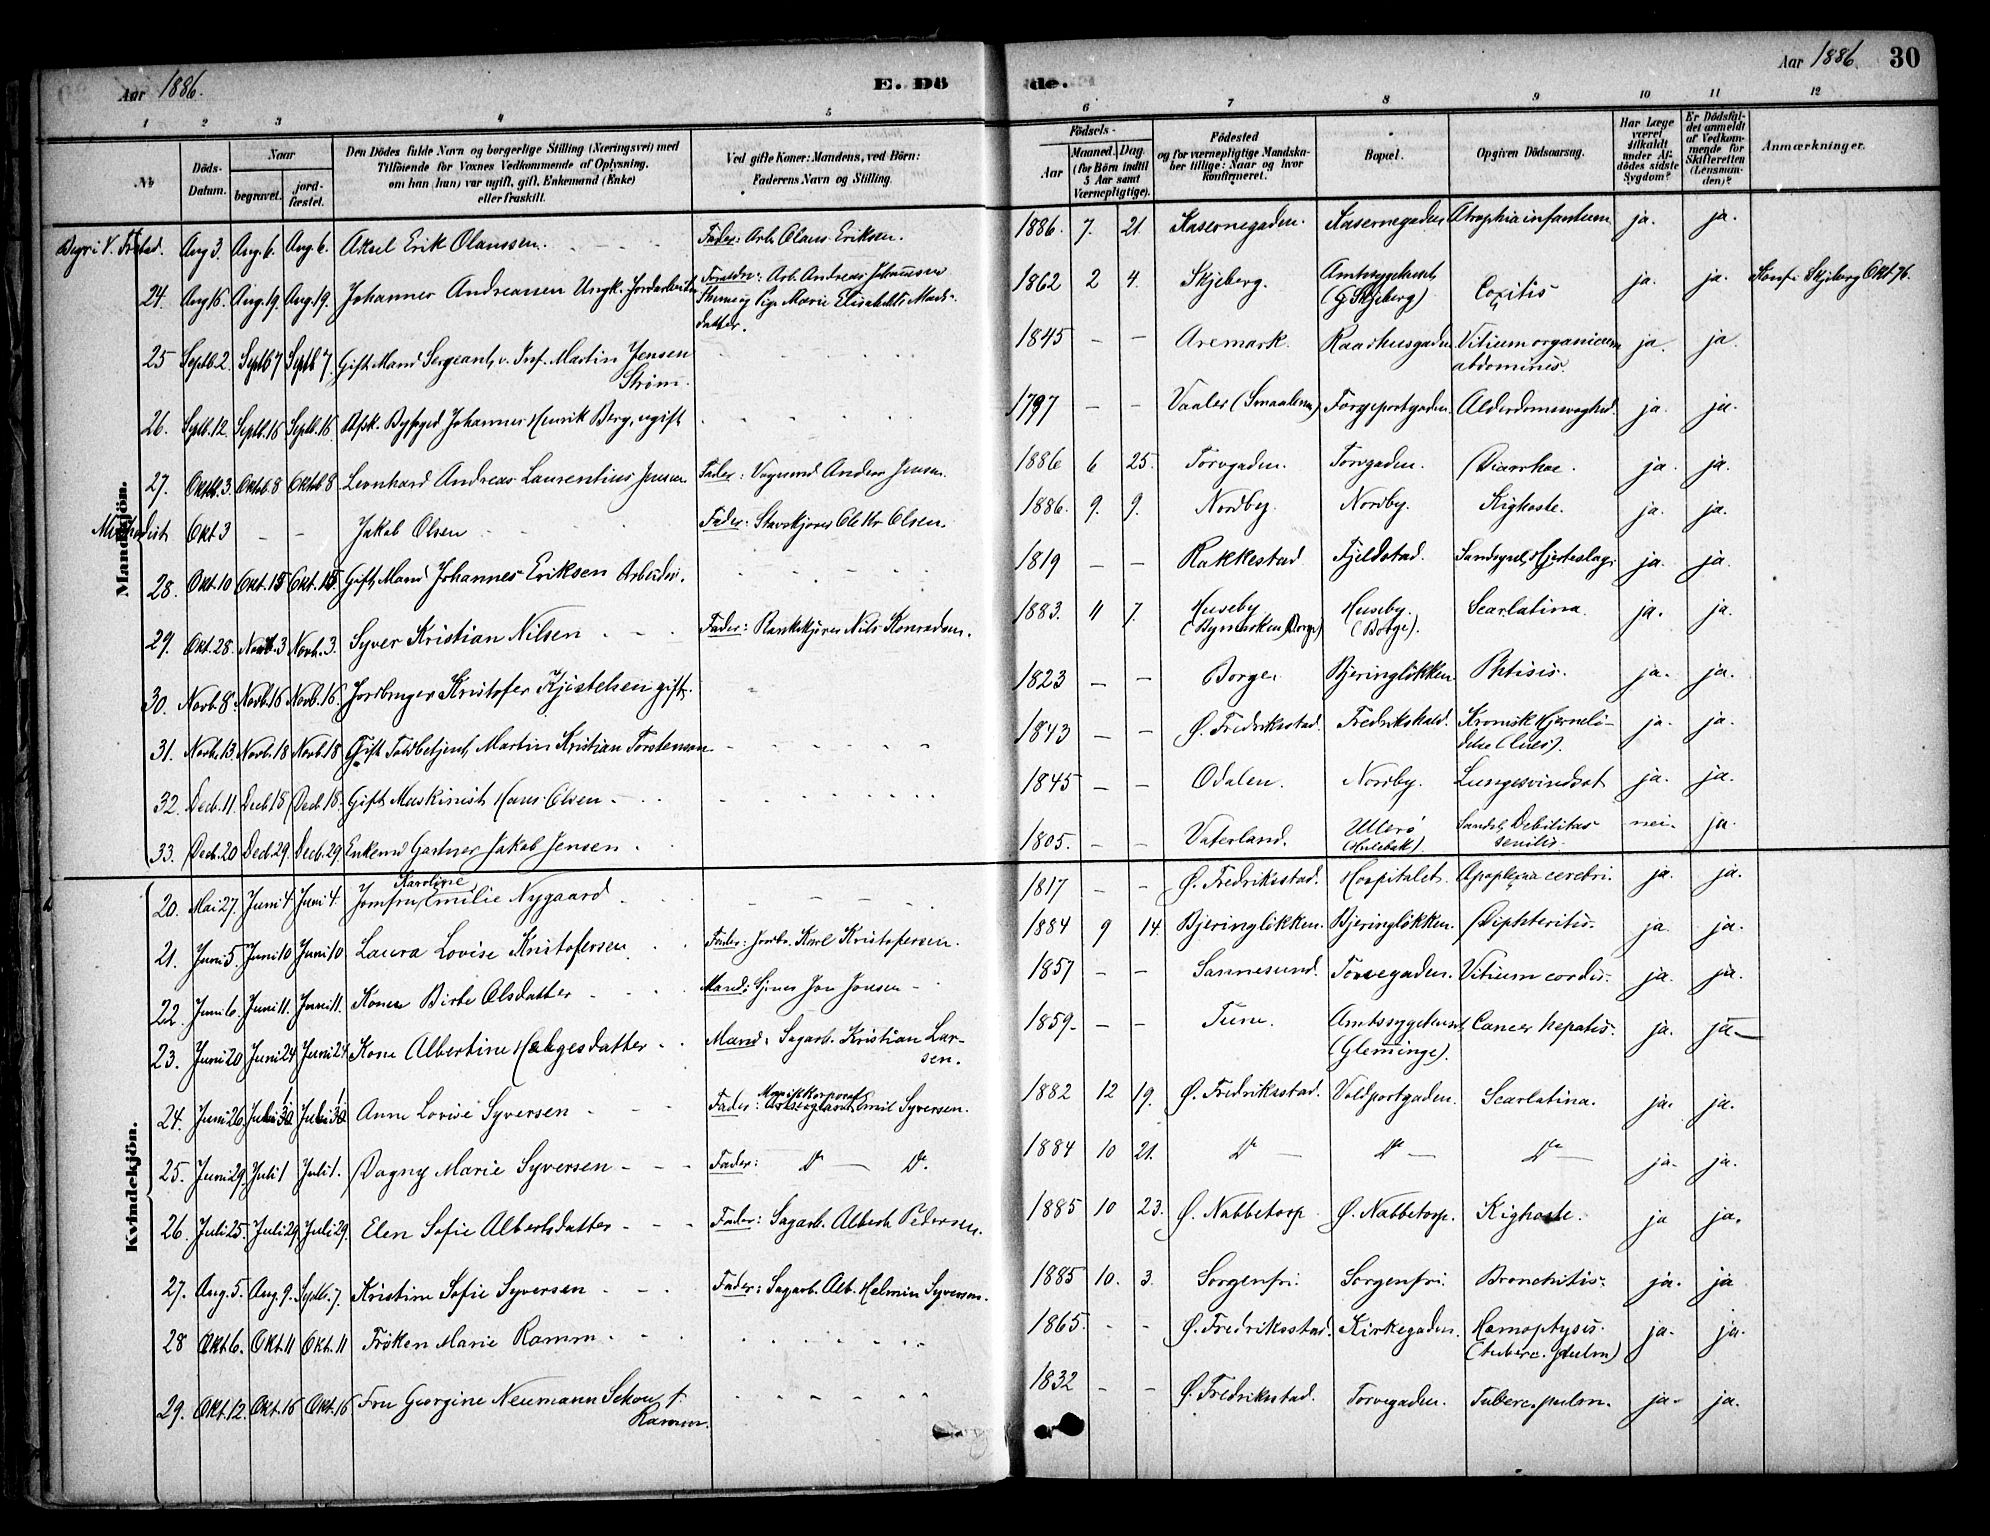 Aar 1886.
E. Dö
de.
Aar 1886.
30
1 2 3 4 5 6 7 8 9 10 11 12
No
Döds-Datum.
Naar
begravet.
jordfæstet.
Den Dödes fulde Navn og borgerlige Stilling (Næringsvei) med
Tilföiende for Voxnes Vedkommende af Oplysning,
om han (hun) var ugift, gift, Enkemand (Enke)
eller fraskilt.
Ved gifte Koner: Mandens, ved Börn:
Faderens Navn og Stilling.
Födsels-
Aar
Maaned. Dag.
(for Börn indtil
5 Aar samt
Værnepligtige).
Födested
og for værnepligtige Mandskaber tillige: Naar og hvor konfirmeret.
Bopæl.
Opgiven Dödsaarsag.
Har Læge været tilkaldt under Afdødes sidste Sygdom?
Er Dödsfaldet anmeldt af Vedkommende for Skifteretten (Lensmanden)?
Anmærkninger.
Mandkjön.
Aug 3 Aug. 6. Aug. 6. Aksel Erik Olaussen. Fader: Arb. Olaus Eriksen. 1886. 7. 21. Kasernegaden. Kasernegaden Atrophia infantum ja. ja.
24. Aug 16. Aug. 19. Aug. 19. Johannes Andreassen Ungk. Jordarbeider Forældre: Arb. Andreas Johannessen 1862 2 4. Skjeberg. Amtssygehuset (G. Skjeberg) Coxitis ja. ja. Konf. i Skjeberg Okt 76.
Pige Marie Elisabeth Mads-
datter.
25 Septb. 2. Septb 7 Septb 7. Gift Mand Sergeant v. Inf. Martin Jensen Strøm. 1845 – – Aremark. Raadhusgaden Vitium organicum abdominis. ja. ja.
26. Septb. 12. Septb. 16 Septb. 16. Afsk. Byfoged Johannes Henrik Berg, ugift 1797 – – Vaaler (Smaalenene) Færgeportgaden. Alderdomssvaghed. ja. ja.
27. Oktb. 3. Oktb. 8 Oktb. 8. Leonhard Andreas Laurentius Jensen Fader: Vognmd Anders Jensen 1886 6 25. Torvgaden. Torvgaden. Diarrhoe. ja. ja.
Methodist Okt 3 – – Jakob Olsen Fader: Ole Kr. Olsen. 1886. 9. 9. Nordby. Nordby. Kighoste. ja. ja.
28. Okt. 10 Okt. 15 Okt. 15. Gift Mand Johannes Eriksen Arbeider. 1819 – – Rakkestad Fjeldstad. Sandsynl. Hjerteslag. ja. ja.
29. Okt. 28. Novb. 3 Novb. 3. Syver Kristian Nilsen Fader: Nils Konradsen. 1883. 11 7. Huseby (Bymarken, Borge) Huseby. (Borge). Scarlatina. ja. ja.
30. Novb. 8. Novb. 16 Novb. 16. Jordbruger Kristofer Kjøstelsen gift. 1823 – – Borge Bjeringløkken Phtisis. ja. ja.
31. Novb. 13. Novb. 18 Novb. 18 Gift Toldbetjent, Martin Kristian Torstensen 1843 – – Ø. Fredriksstad. Fredrikshald. Kronisk Hjernelidelse (Lues). ja. ja.
32. Decb. 11. Decb 18 Decb. 18. Gift Maskinist Hans Olsen 1845 – – Odalen. Nordby. Lungesvindsot ja. ja.
33. Decb. 20 Decb. 29. Decb. 29. Enkemd Gartner Jakob Jensen 1805. – – Vaterland. Ullerø Sandsl. Debilitas senilis. nei. ja.
Kvindekjön.
20. Mai 27. Juni 4 Juni 4. Jomfru Karoline Emilie Nygaard 1817 – – Ø. Fredriksstad. Hospitalet. Apoplexia cerebri. ja. ja.
21. Juni 5. Juni 10 Juni 10. Laura Lovise Kristofersen Fader: Jordbr. Karl Kristofersen. 1884 9 14. Bjeringløkken. Bjeringløkken. Diphteritis. ja. ja.
22. Juni 6. Juni 11. Juni 11. Konen Birte Olsdatter Mand: Jon Jonsen 1857 – – Sannesund. Torvegaden. Vitium cordis. ja. ja.
23. Juni 20 Juni 24 Juni 24 Kone Albertine Helgesdatter Mand: Sagarb. Kristian Larsen. 1859. – – Tune. Amtssygehuset (Glemminge). Cancer hepatis. ja. ja
24. Juni 26. Anna Lovise Syversen Fader: Musikkorporal Emil Syversen. 1882 12 19. Ø. Fredriksstad. Voldportgaden. Scarlatina. ja. ja.
25. Juni 29. Juli 1 Juli 1. Dagny Marie Syversen Fader: Do – Do. 1884 10 21. Do – Do – Do – ja. ja.
26. Juli 25. Juli 29. Juli 29. Elen Sofie Albertsdatter Fader: Sagarb. Albert Pedersen. 1885 10 23. Ø. Nabbetorp. Ø. Nabbetorp. Kighoste. ja ja.
27. Aug. 5. Aug. 9. Septb. 7. Kristine Sofie Syversen Fader: Sagarb. Alb. Helmin Syversen. 1885 10. 3. Sorgenfri. Sorgenfri. Bronchitis. ja. ja
28 Okt 6. Okt. 11 Okt. 11 Frøken Marie Ramm 1865. – – Ø. Fredriksstad. Kirkegaden. Hæmoptysis. (Tuberc. pulm) ja. ja.
29. Okt. 12. Okt. 16 Okt. 16 Fru Georgine Neumann Schou f. Ramm. 1832 – – Ø. Fredriksstad. Torvegaden. Tuberc. pulm. ja. ja.